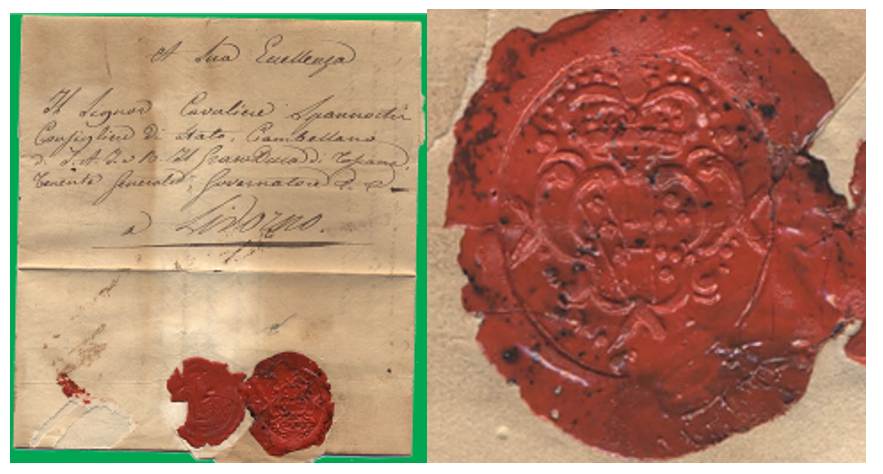 A Sua Eccellenza
Il Signor Cavaliere Spannocchi
Consigliere di Stato, Ciambellano
di S. A. I. e R. Il Gran Duca di Toscana,
Tenente Generale, Governatore &. &.
a Livorno.